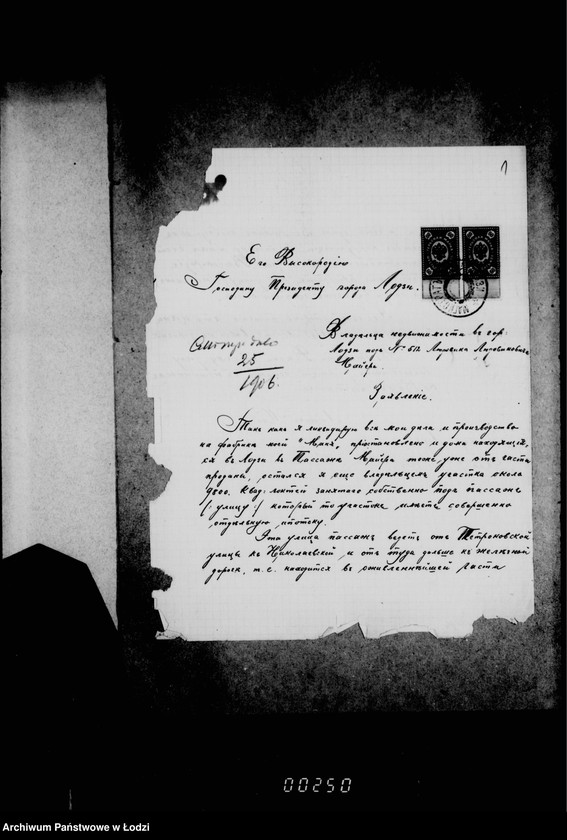 1
Его Высокородію
Господину Президенту города Лодзи.
Владѣльца недвижимости въ гор.
Лодзи подъ № 512 Людвика Людвиковича
Мейера
Заявленіе.
25
1906.
Такъ какъ я ликвидирую всѣ мои дѣла и производство
на фабрикѣ моей пріостановлено и дома находящія-
ся въ Лодзи въ Пассажѣ Мейера тоже уже отъ части
проданы, остался я еще владѣльцемъ участка около
9800. квад. локтей занятаго собственно подъ пассажъ
(: улицу :) который то участокъ имѣетъ совершенно
отдѣльную ипотеку.
Эта улица пассажъ ведетъ отъ Петроковской
улицы къ Николаевской и отъ туда дальше къ желѣзной
дорогѣ, т. е. находится въ оживленнѣйшей части
00250
Archiwum Państwowe w Łodzi